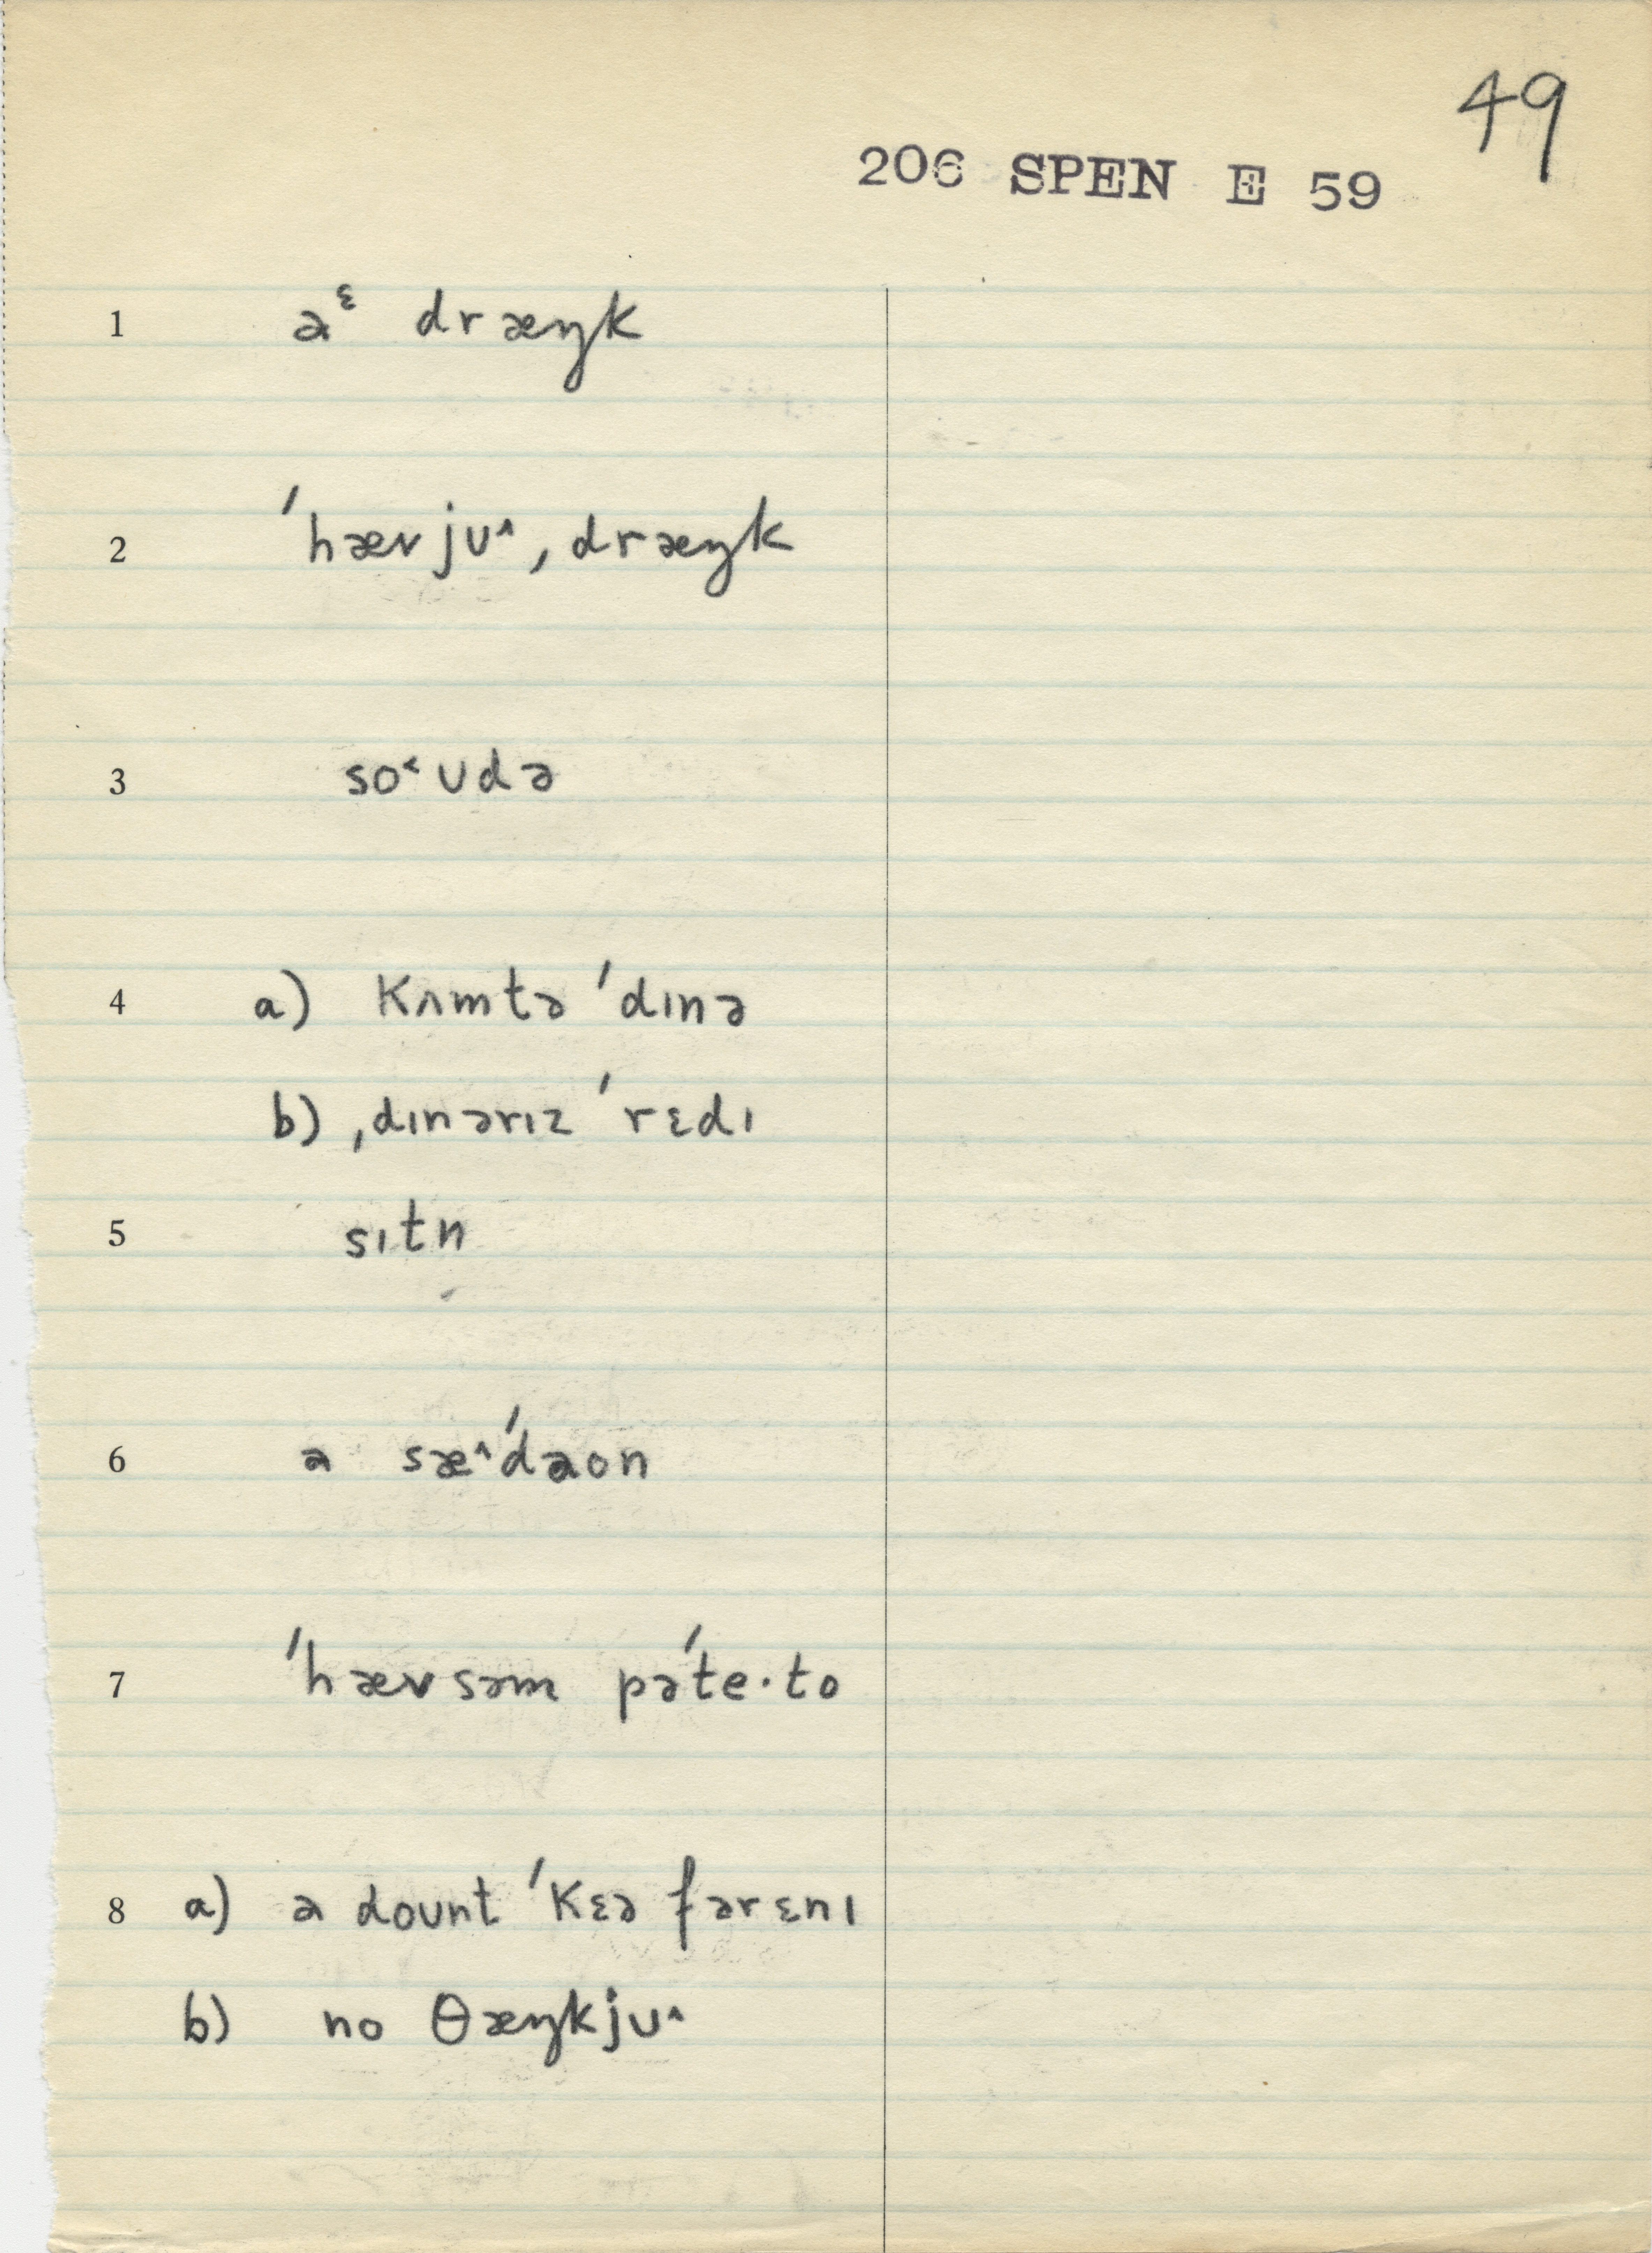 49
206 SPEN E 59
1 aᵋ dræŋk
2 ˈhævjʊ˄ ˌdræŋk
3 so˂ʊdə
4 a) kʌmtə ˈdɪnə
b) ˌdɪnərɪz ˈrɛdɪ
5 sɪtn
6 a sæ˄ˈdaon
7 ˈhævsəm pəˈte·to
8 a) a doʊnt ˈkɛə fərɛnɪ
b) no θæŋkjʊ˄